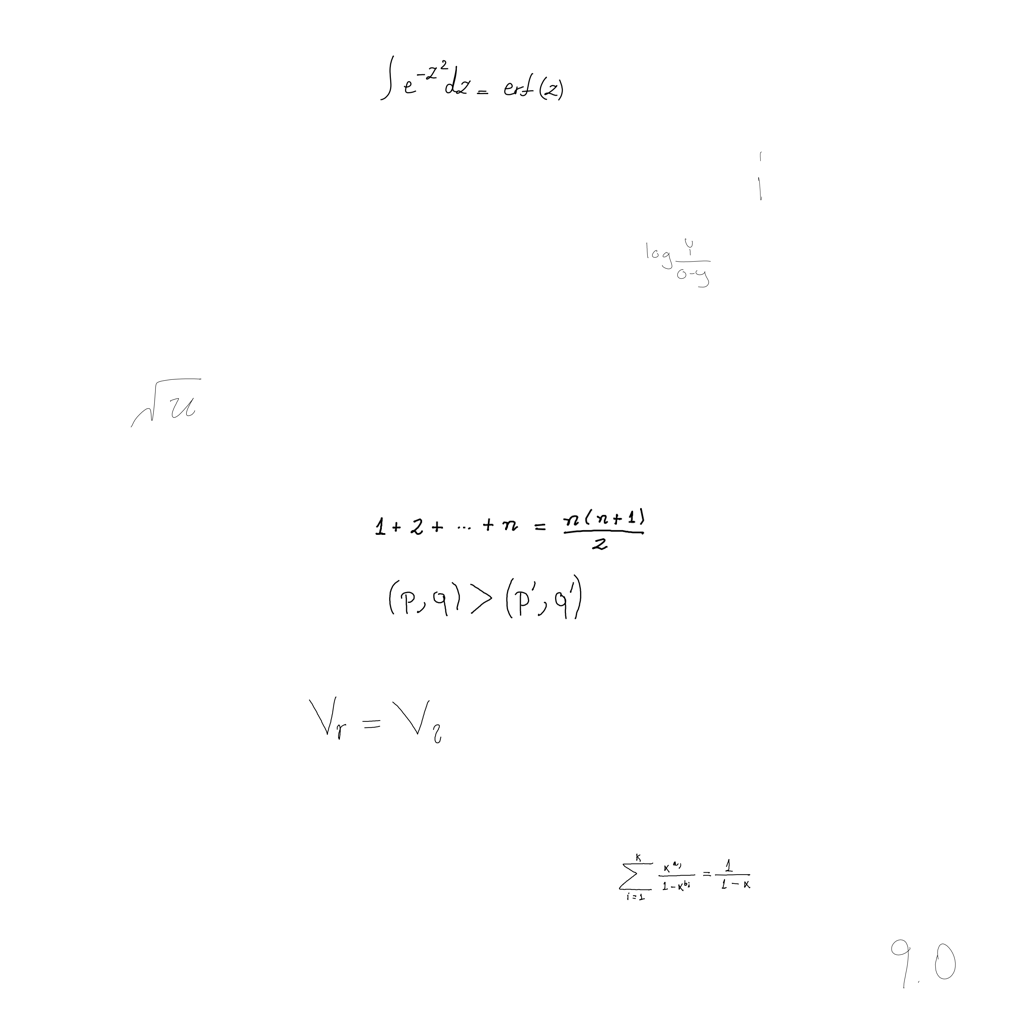 ∫ e^{-z^2} dz = erf(z)
i
log \frac{y}{0-y}
\sqrt{u}
1 + 2 + ... + n = \frac{n(n+1)}{2}
(p, q) > (p', q')
V_r = V_2
\sum_{i=1}^{K} \frac{K^{a_i}}{1-K^{b_i}} = \frac{1}{1-K}
9.0